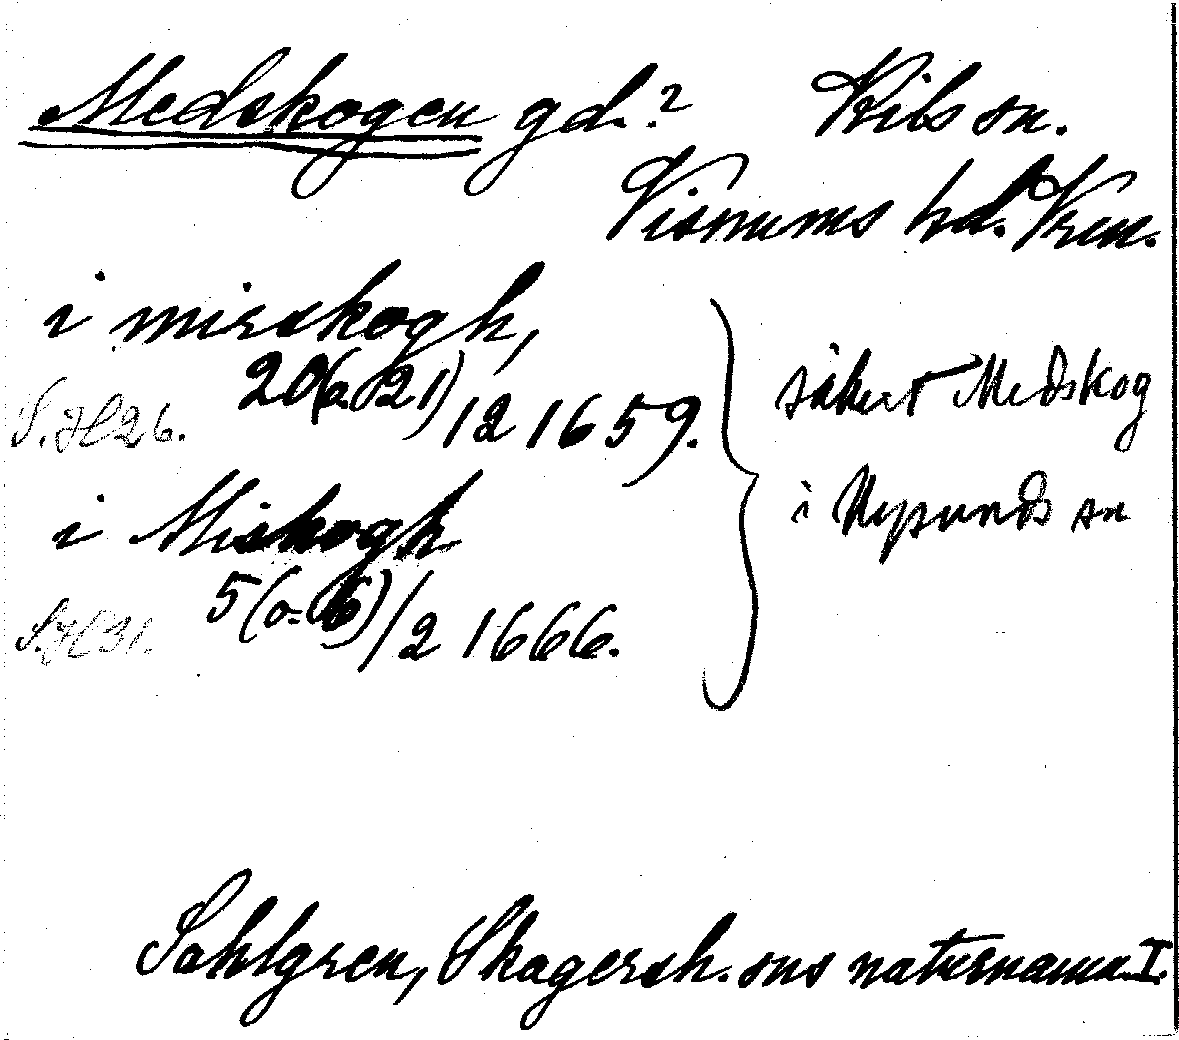 Medskogen gd.? Kils sn.
Visnums hd. Vrm.
i mirskogh,
S. 26. 20(o. 21)/12 1659.
säkert Medskog
i Miskogh
i Nysunds sn
S. 31. 5(o. 6)/2 1666.
Sahlgren, Skagersh. sns naturnamn I.